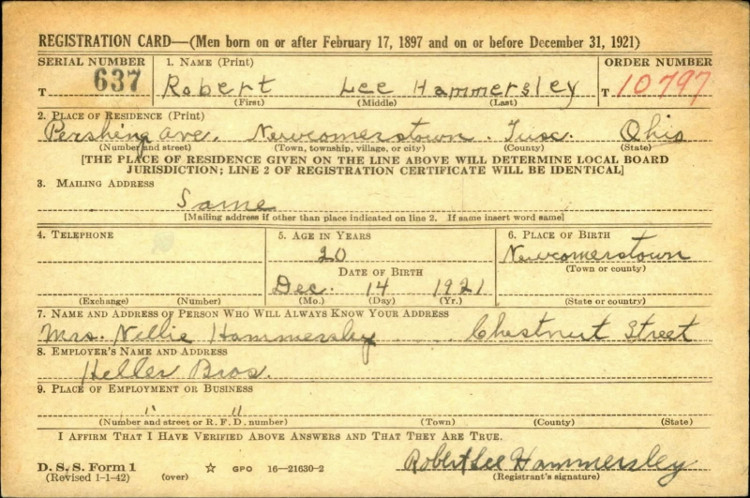 REGISTRATION CARD—(Men born on or after February 17, 1897 and on or before December 31, 1921)
SERIAL NUMBER 1. NAME (Print) ORDER NUMBER
T 637 Robert Lee Hammersley T 10797
(First) (Middle) (Last)
2. PLACE OF RESIDENCE (Print)
Pershing Ave. Newcomerstown. Tusc. Ohio
(Number and street) (Town, township, village, or city) (County) (State)
[THE PLACE OF RESIDENCE GIVEN ON THE LINE ABOVE WILL DETERMINE LOCAL BOARD
JURISDICTION; LINE 2 OF REGISTRATION CERTIFICATE WILL BE IDENTICAL]
3. MAILING ADDRESS
Same
[Mailing address if other than place indicated on line 2. If same insert word same]
4. TELEPHONE 5. AGE IN YEARS 6. PLACE OF BIRTH
20 Newcomerstown
DATE OF BIRTH (Town or county)
Dec. 14 1921
(Exchange) (Number) (Mo.) (Day) (Yr.) (State or country)
7. NAME AND ADDRESS OF PERSON WHO WILL ALWAYS KNOW YOUR ADDRESS
Mrs. Nellie Hammersley Chestnut Street
8. EMPLOYER'S NAME AND ADDRESS
Heller Bros.
9. PLACE OF EMPLOYMENT OR BUSINESS
" "
(Number and street or R. F. D. number) (Town) (County) (State)
I AFFIRM THAT I HAVE VERIFIED ABOVE ANSWERS AND THAT THEY ARE TRUE.
D. S. S. Form 1 Robert Lee Hammersley
(Revised 1-1-42) (over) ☆ GPO 16—21630-2 (Registrant's signature)